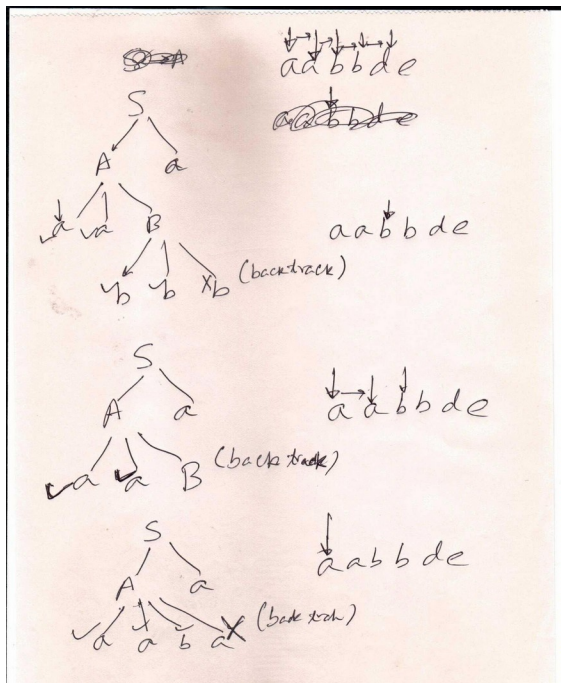 a a b b d e
S
A a
a a B
a a b b d e
b b b (backtrack)
S
a a b b d e
A a
a a B (backtrack)
S
a a b b d e
A a
a a b a